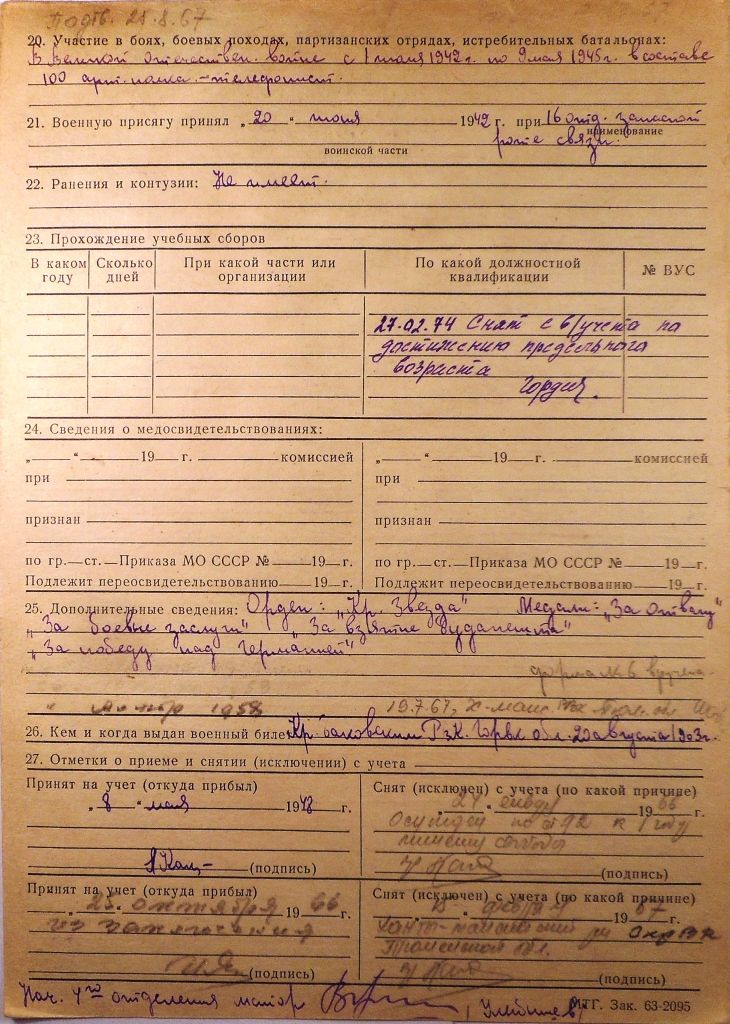 Подтв. 25.8.67
20. Участие в боях, боевых походах, партизанских отрядах, истребительных батальонах:
В Великой Отечествен. войне с 1 июля 1942 г. по 9 мая 1945 г. в составе
100 арт. полка - телефонист.
21. Военную присягу принял „20“ июня 1942 г. при 16 отд. запасной
наименование
роте связи.
воинской части
22. Ранения и контузии: Не имеет.
23. Прохождение учебных сборов
В каком году
Сколько дней
При какой части или организации
По какой должностной квалификации
№ ВУС
27.02.74 Снят с в/учета по
достижению предельного
возраста
24. Сведения о медосвидетельствованиях:
„ “ 19 г. комиссией
„ “ 19 г. комиссией
при
при
признан
признан
по гр. ст. Приказа МО СССР № 19 г.
по гр. ст. Приказа МО СССР № 19 г.
Подлежит переосвидетельствованию 19 г.
Подлежит переосвидетельствованию 19 г.
25. Дополнительные сведения: Орден: „Кр. Звезда“ Медали: „За отвагу“
„За боевые заслуги“ „За взятие Будапешта“
„За победу над Германией“
форма № 6 вручена
1958 19.7.67.
26. Кем и когда выдан военный билет Кр. Баковским РВК Горьк. обл. 20 августа 1963 г.
27. Отметки о приеме и снятии (исключении) с учета
Принят на учет (откуда прибыл)
Снят (исключен) с учета (по какой причине)
„8“ мая 1948 г.
1966
Осужден по к 1 году
лишения свободы
(подпись)
(подпись)
Принят на учет (откуда прибыл)
Снят (исключен) с учета (по какой причине)
„25“ октября 1966 г.
1967 г.
из заключения
Ханты-мансийский ОкрВК
Тюменской обл.
(подпись)
(подпись)
Нач. 4го отделения майор
МТГ. Зак. 63-2095